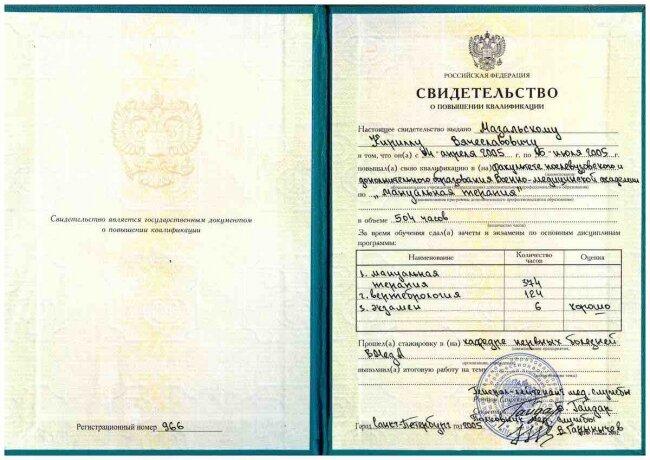 Свидетельство является государственным документом
о повышении квалификации
Регистрационный номер 966
РОССИЙСКАЯ ФЕДЕРАЦИЯ
СВИДЕТЕЛЬСТВО
О ПОВЫШЕНИИ КВАЛИФИКАЦИИ
Настоящее свидетельство выдано Магальскому
Кириллу Вячеславовичу
в том, что он(а) с апреля 2005 г. по июля 2005 г.
повышал(а) свою квалификацию в (на) факультете послевузовского и
дополнительного образования Военно-медицинской академии
по „Мануальная терапия"
в объеме 504 часов
За время обучения сдал(а) зачеты и экзамены по основным дисциплинам
программы:
Наименование Количество часов Оценка
1. мануальная
терапия 374
2. вертебрология 124
3. экзамен 6 хорошо
Прошел(а) стажировку в (на) кафедре нервных болезней
ВМедА
выполнил(а) итоговую работу на тему
Генерал-лейтенант мед. службы
Б. Гайдар
Полковник мед. службы
Город Санкт-Петербург год 2005